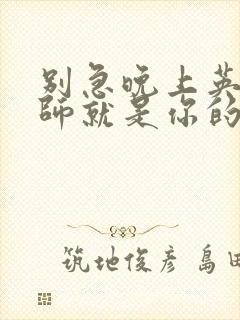 别急晚上英
师就是你的
筑地俊彦 島田